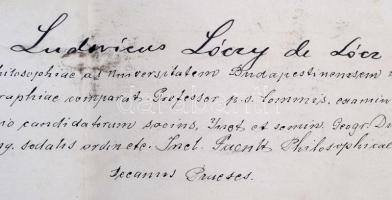 Ludovicus Lóczy de Lócz
hilosophiae ad Universitatem Budapestinensem
raphiae comparat. Professor p. o. comm. s. examin
candidatorum socius, Inst. et semin. Geogr. Di
g. sodalis ordin. etc. Incl. Facult Philosophicae
Decanus Praeses.